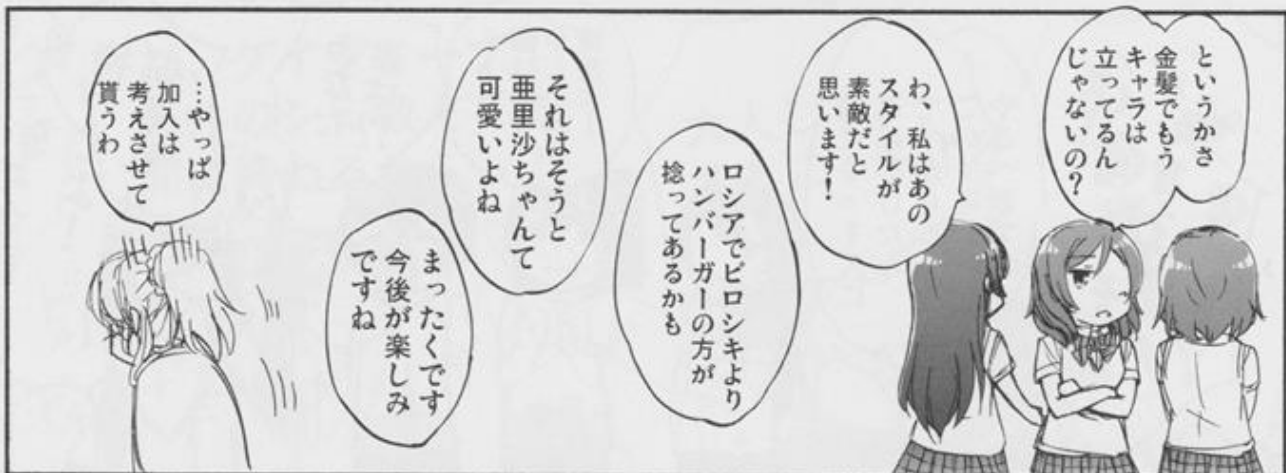 というかさ
金髪でもう
キャラは
立ってるん
じゃないの？
わ、私はあの
スタイルが
素敵だと
思います！
ロシアでピロシキより
ハンバーガーの方が
捻ってあるかも
それはそうと
亜里沙ちゃんて
可愛いよね
まったくです
今後が楽しみ
ですね
…やっぱ
加入は
考えさせて
貰うわ